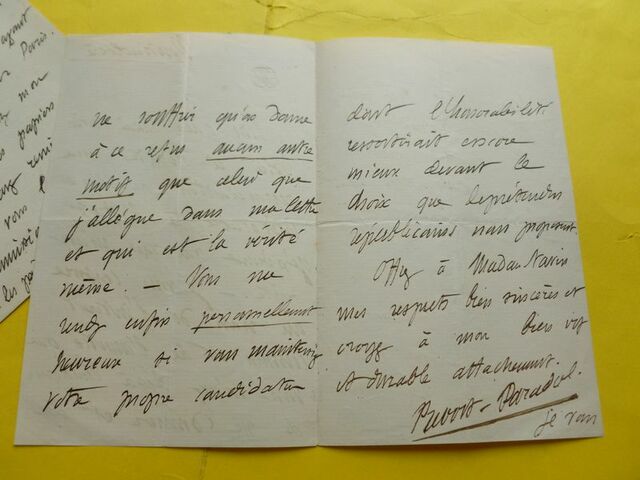 ayant
Paris.
mon
papiers
vous
ne souffrir qu'on donne
à ce refus aucun autre
motif que celui que
j'allègue dans ma lettre
et qui est la vérité
même. — Vous me
rendez enfin personnellement
heureux si vous maintenez
votre propre candidature
dont l'honorabilité
ressortirait encore
mieux devant le
choix que les prétendus
républicains nous proposent.
Offrez à Madame Navin
mes respects bien sincères et
croyez à mon bien vif
et durable attachement.
Prevost-Paradol.
je vous